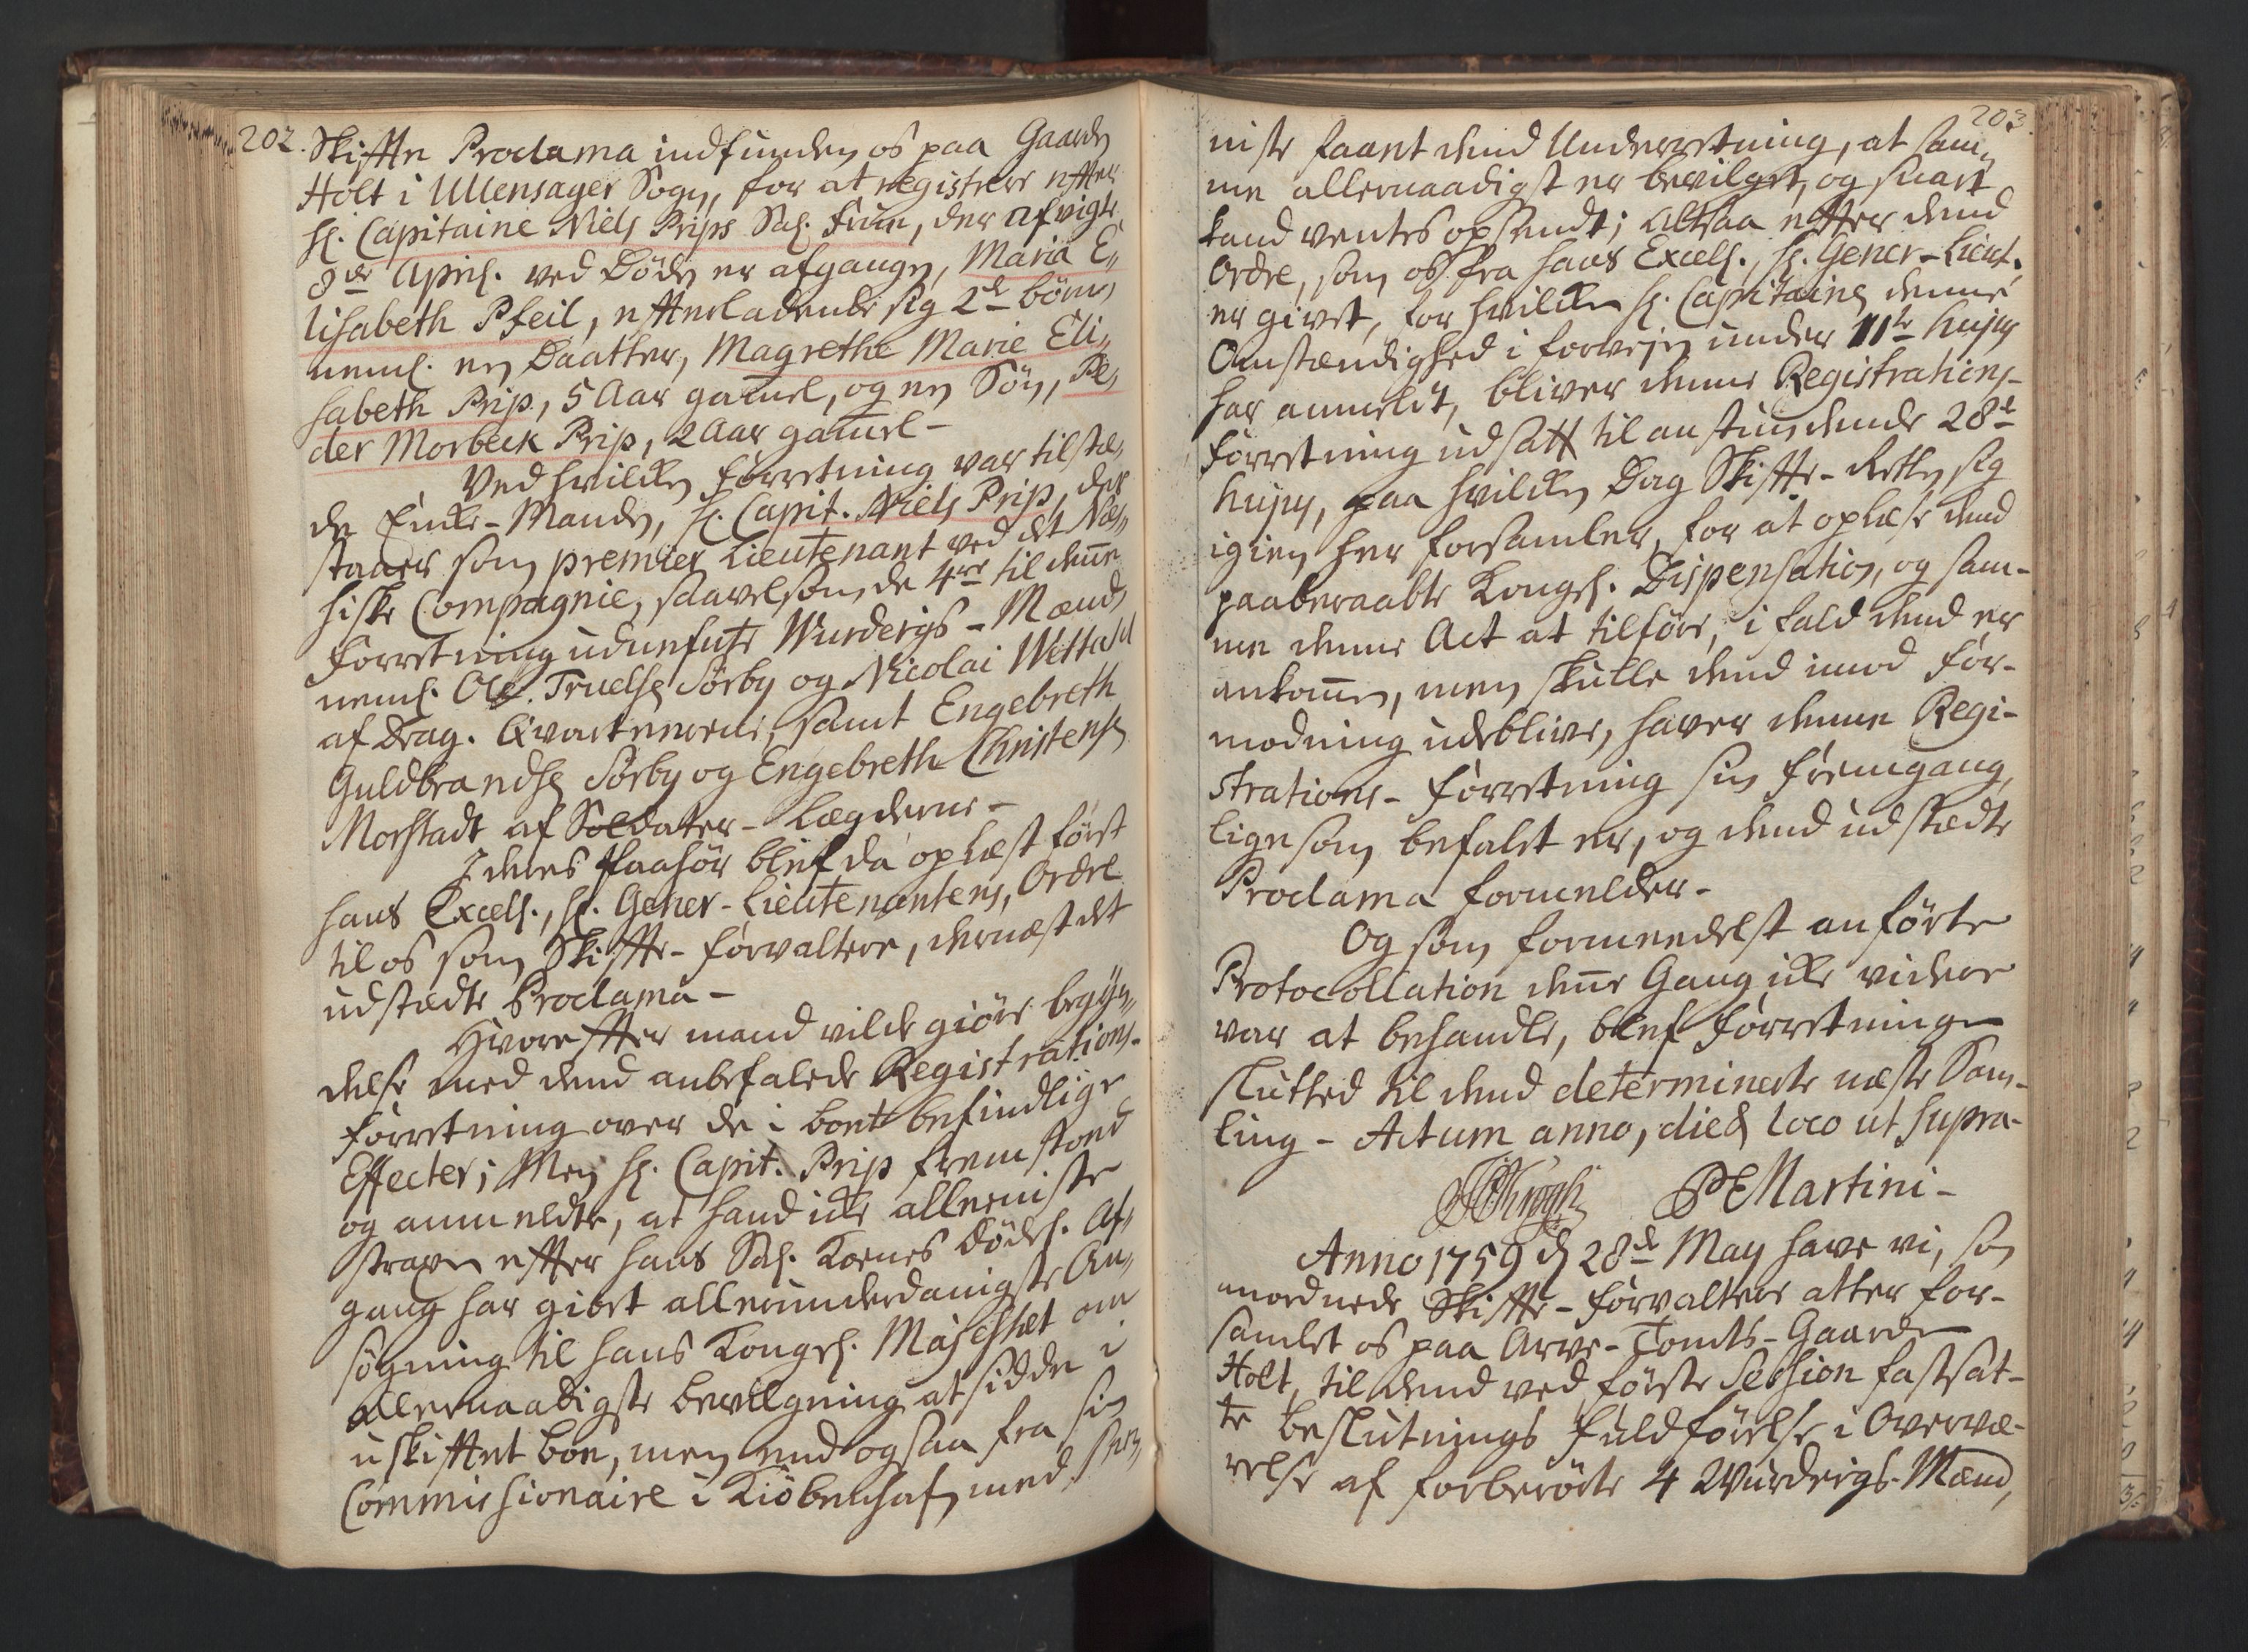 202.
Skiftte Proclama indfunden os paa Gaarden
Holt i Ullensager Sogn, for at registrere efter
Hr. Capitaine Niels Prips Sal. Frue, der afvigte
8de April. ved Døden er afgangen, Maria E„
lisabeth Pfeil, efterladende sig 2de børn,
neml. en Daatter, Magrethe Marie Eli„
sabeth Prip, 5 Aar gamel, og en Søn, Pe„
der Morbeck Prip, 2 Aar gamel –
Ved hvilken forretning var tilstæ„
de Enke-Manden, Hr. Capit. Niels Prip, der
staaer som premier Lieutenant ved det Næs„
siske Compagnie, saavelsom de 4re til denne
forretning udnefnte Wurderigs-Mænd,
neml. Ole Truelsen Sørby og Nicolai Wettahl
af Drag. Qvarteererne, samt Engebreth
Guldbrandsen Sørby og Engebreth Christensen
Morstadt af Soldater-Lægderne –
I deres Paahør blef da oplæst først
hans Excell., Hr. Gener-Lieutenantens, Ordre
til os som Skiftte-forvaltere, dernæst det
udstædte Proclama –
Hvorefter mand vilde giøre begyn„
delse med dend anbefalede Registrations-
forretning over de i boet befindlige
Effecter; Men Hr. Capit. Prip fremstoed
og anmeldte, at hand ikke allerniste
straxen efter hans Sal. Kones dødel. Af„
gang har giort allerunderdanigste An„
søgning til hans Kongel. Majesthet om
allernaadigste bevilgning at sidde i
uskiftet boe, men end ogsaa fra sin
Commissionaire i Kiøbenhafn med
203.
niste faaet dend Underretning, at sam„
me allernaadigst er bevilget, og snart
kand ventes opsendt; Altsaa efter dend
Ordre, som os fra hans Excell., Hr. Gener-Lieut.
er givet, for hvilken Hr. Capitainen denne
Omstændighed i forvejen under 11te hujus
har anmeldt, bliver denne Registrations-
forretning udsatt til anstundende 28de
hujus, paa hvilken Dag Skiftte-Retten sig
igien her forsamler, for at oplæse dend
paaberaabte Kongel. Dispensation, og sam-
me denne Act at tilføre, i fald dend er
ankommen, men skulle dend imod for-
modning udeblive, haver denne Regi-
strations-forretning sin fremgang,
ligesom befalet er, og dend udstædte
Proclama formelder.
Og som formeedelst anførte
Protocollation denne Gang ikke videre
var at behandle, blef forretningen
sluttet til dend determinerte næste Sam-
ling – Actum anno, die & loco ut supra.
PMartini –
Anno 1759 d. 28de May have vi, som
anordnede Skiftte-forvaltere atter for-
samlet os paa Arve-Tomts-Gaarden
Holt, til dend ved første Session fastsat-
te beslutnings fuldførelse i Overvæ-
relse af forberørte 4 Wurderigs-Mænd,